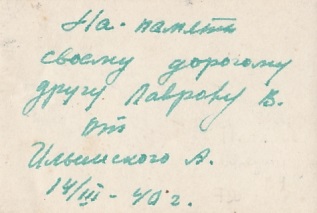 На память
своему дорогому
другу Лаврову В.
от
Ильинского А.
14/III - 40 г.